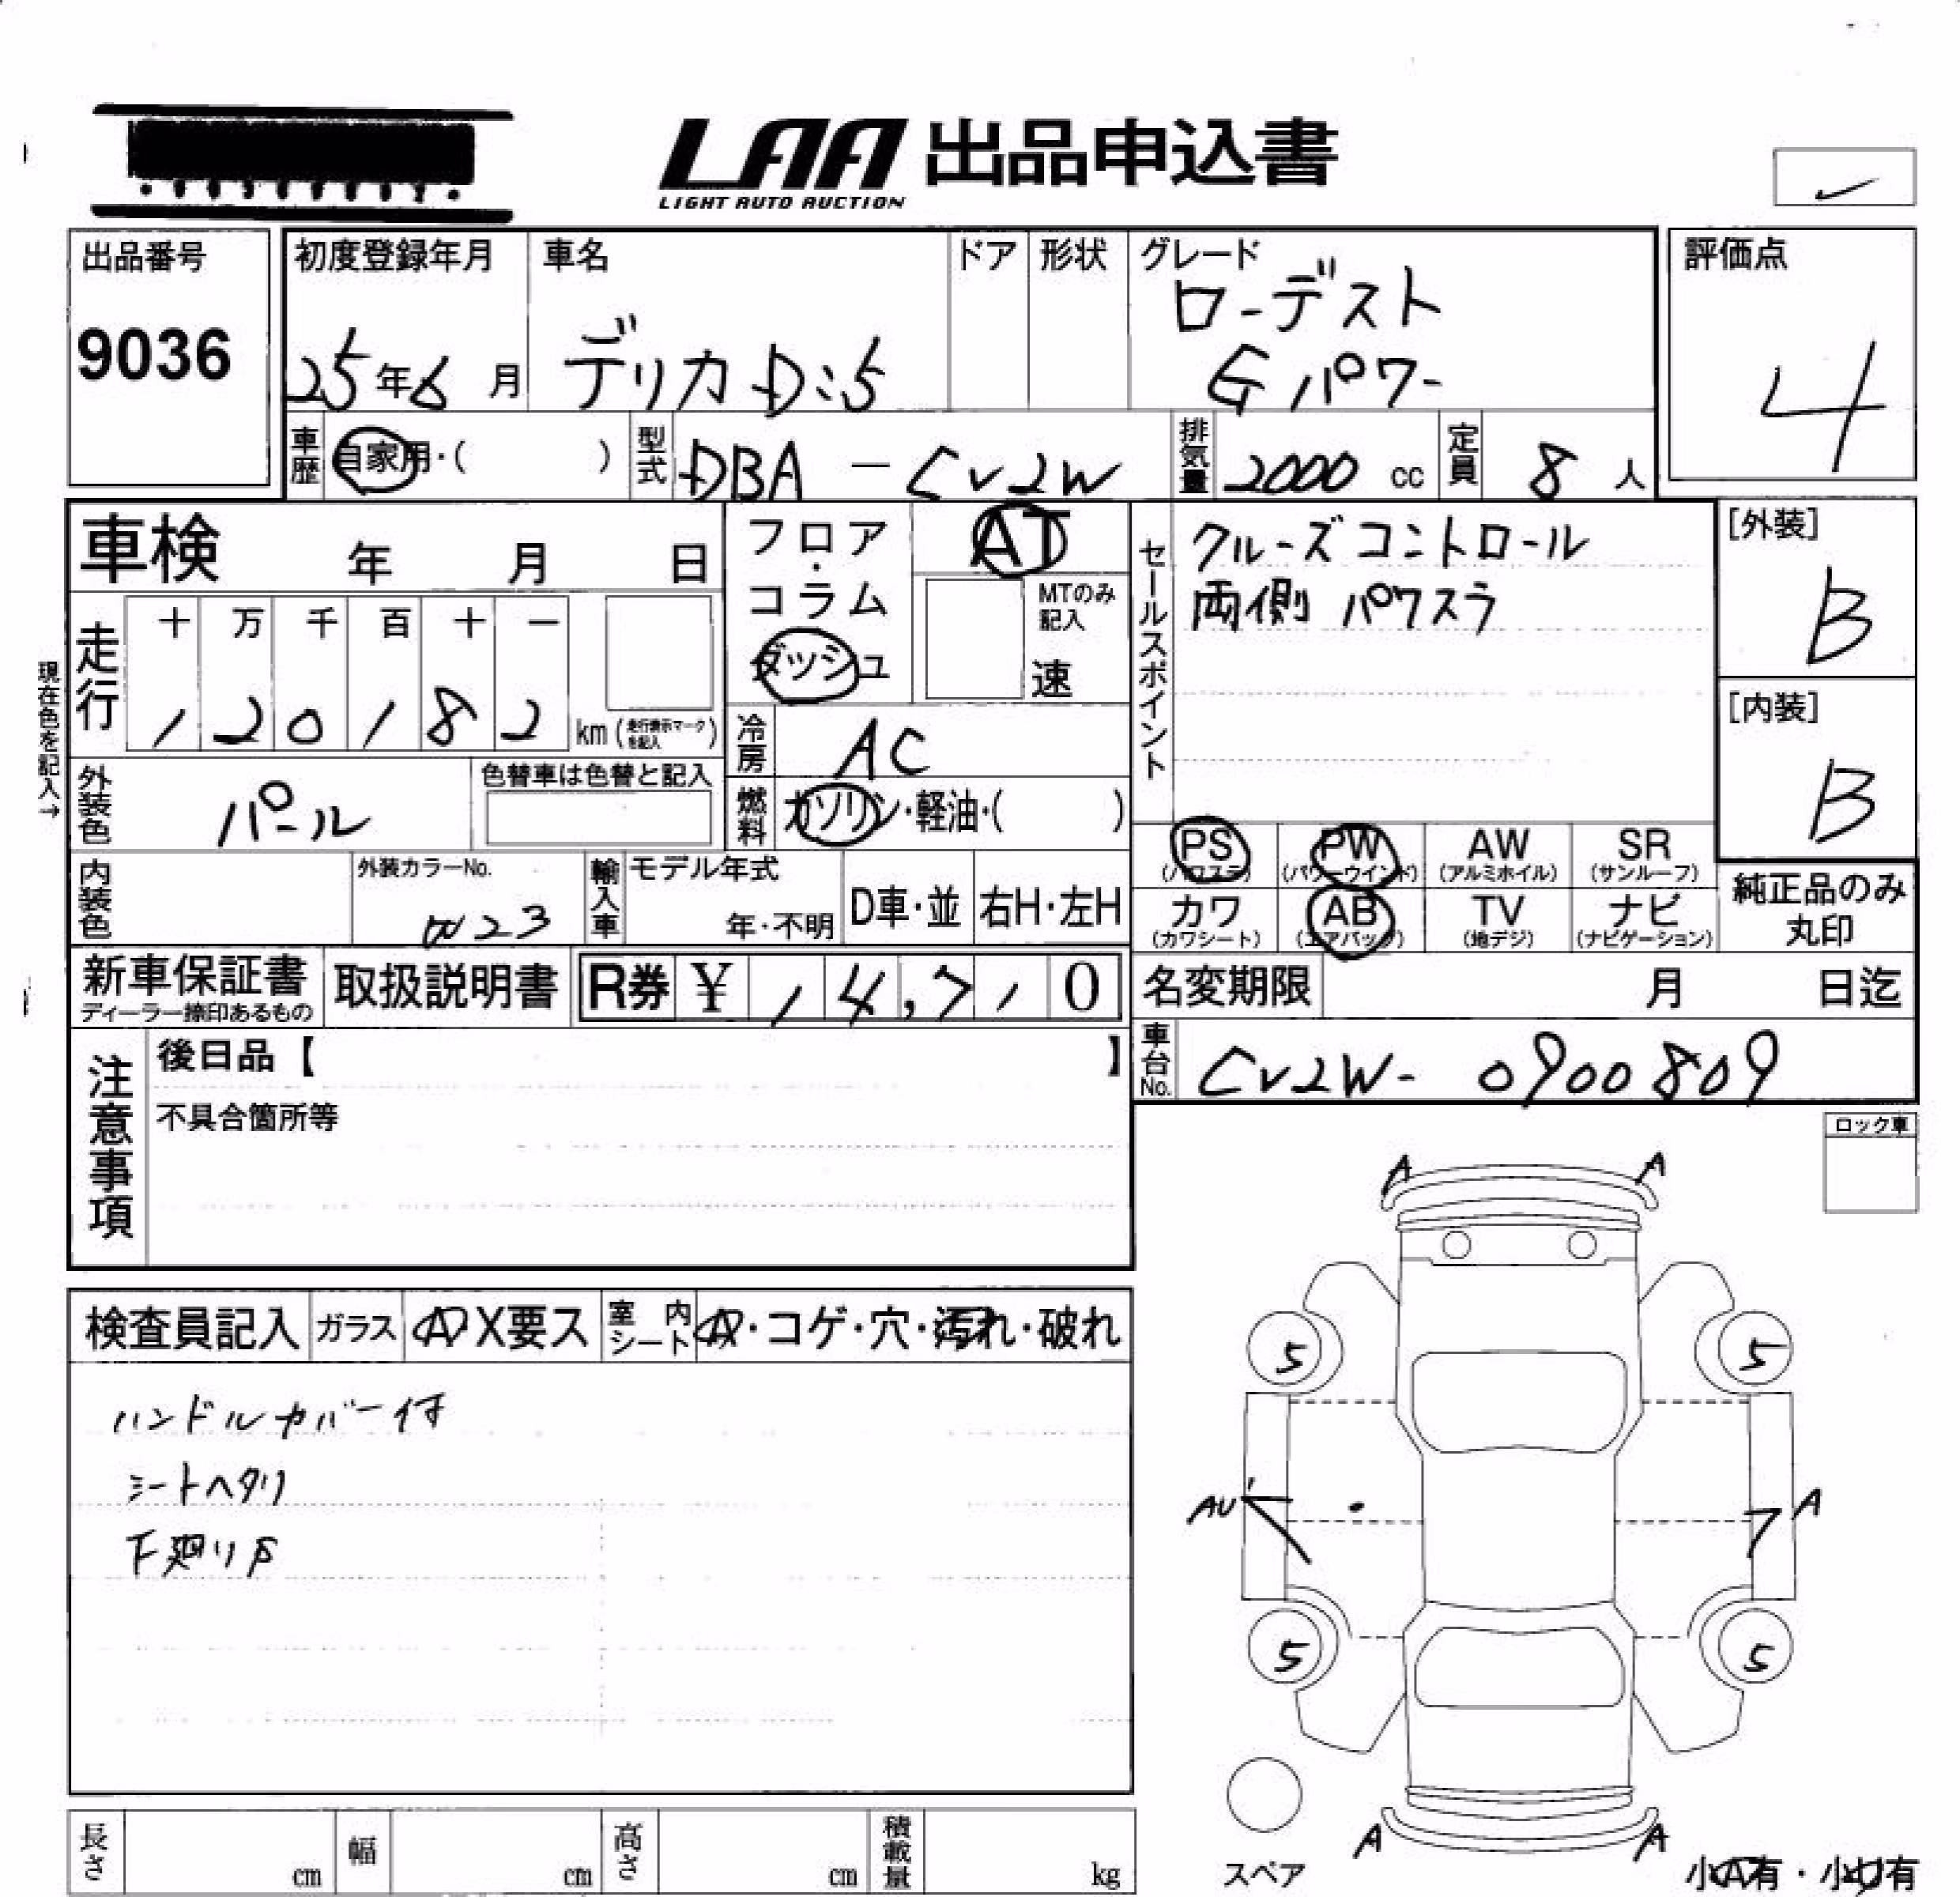 LAA 出品申込書
LIGHT AUTO AUCTION
出品番号
9036
初度登録年月
25年6月
車名
デリカD:5
ドア
形状
グレード
ローデスト
Gパワー
評価点
4
車歴
自家用・( )
型式
DBA-CV2W
排気量
2000 cc
定員
8人
車検 年 月 日
フロア・コラム
ダッシュ
AT
MTのみ記入
速
セールスポイント
クルーズコントロール
両側パワスラ
[外装]
B
[内装]
B
現在色を記入→
走行
十 万 千 百 十 一
1 2 0 1 8 2 km(走行表示マークを記入)
冷房
AC
外装色
パール
色替車は色替と記入
燃料
ガソリン・軽油・( )
PS
(パワステ)
PW
(パワーウインド)
AW
(アルミホイル)
SR
(サンルーフ)
カワ
(カワシート)
AB
(エアバッグ)
TV
(地デジ)
ナビ
(ナビゲーション)
純正品のみ
丸印
内装色
外装カラーNo.
W23
輸入車
モデル年式
年・不明
D車・並
右H・左H
新車保証書
ディーラー捺印あるもの
取扱説明書
R券 ¥ 14,710
名変期限 月 日迄
車台No.
CV2W-0900809
注意事項
後日品【 】
不具合箇所等
ロック車
検査員記入
ガラス
A・X要ス
室内シート
A・コゲ・穴・汚れ・破れ
ハンドルカバー付
シートヘタリ
下廻りS
A A
5 5
AU' A
5 5
スペア
A A
小A有・小U有
長さ cm
幅 cm
高さ cm
積載量 kg